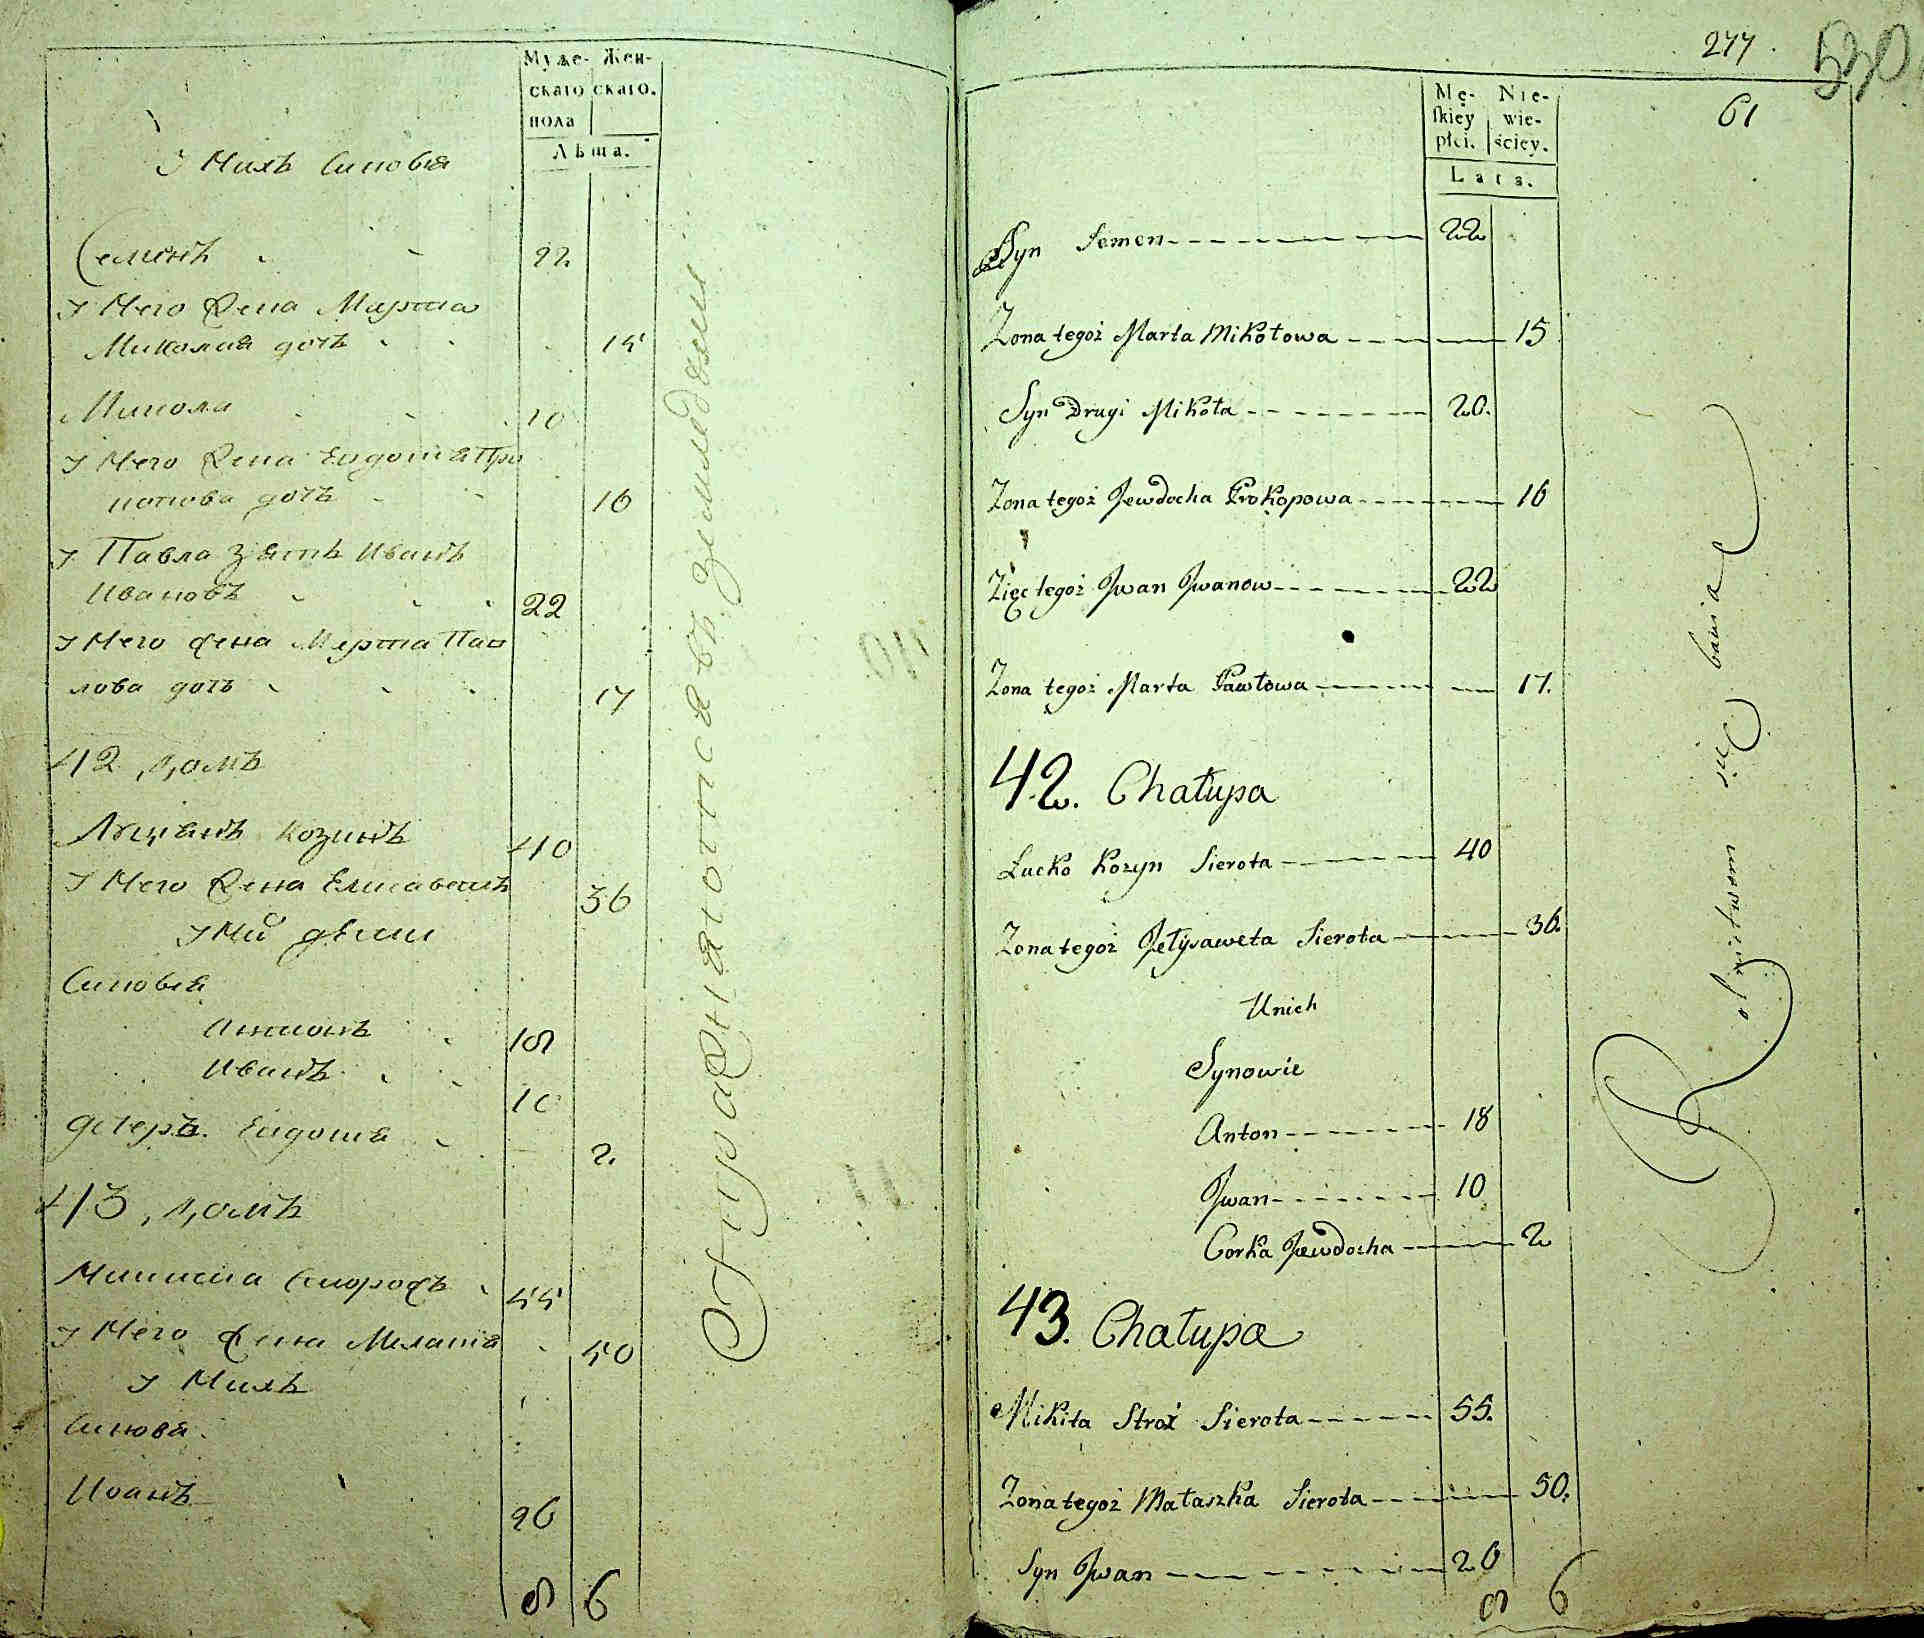 Муже- Жен-
скаго скаго.
пола
Лѣта.
У Нихъ Синовья
Семенъ 22.
У Него Жена Марта
Миколая дочъ 15
Микола 20
У Него Жена Евдокия Про
копова дочъ 16
У Павла Зять Иванъ
Ивановъ 22
У Него Жена Марта Пав
лова дочъ 17
42 домъ
Луцянъ Козинъ 40
У Него Жена Елисаветъ 36
У Ни дѣти
Синовья
Антонъ 18
Иванъ 10
Дочеръ Евдокия 2.
43 домъ
Микита Сторожъ 55
У Него Жена Меланія 50
У Нихъ
Синовя
Иванъ 26
8 6
277.
530
61
Mę- Nie-
skiey wie-
płci. ściey.
Lata.
Syn Semen 22
Zona tegoż Marta Mikołowa 15
Syn Drugi Mikoła 20.
Zona tegoż Jewdocha Prokopowa 16
Zięc tegoż Jwan Jwanow 22
Zona tegoż Marta Pawłowa 17.
42. Chałupa
Łucko Kozyn Sierota 40
Zona tegoż Jełysaweta Sierota 36.
Unich
Synowie
Anton 18
Jwan 10
Corka Jewdocha 2
43. Chałupa
Mikita Stroż Sierota 55.
Zona tegoż Małaszka Sierota 50.
Syn Jwan 26
8 6
Rolnictwem się bawią